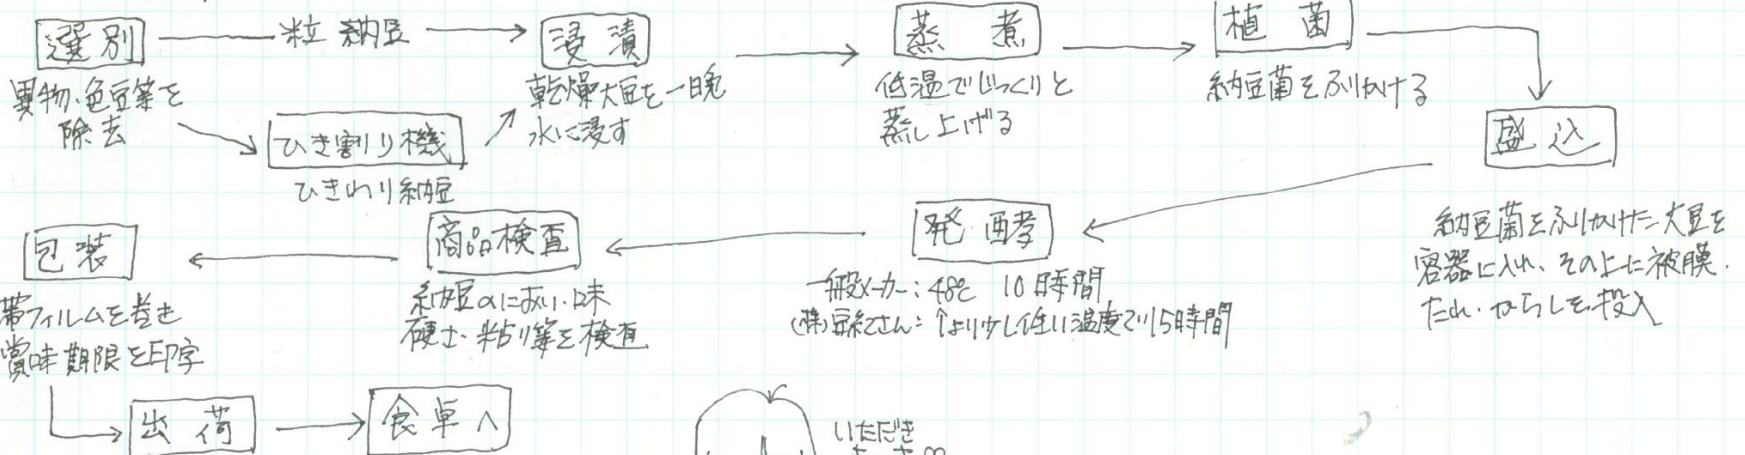 選別
粒納豆
浸漬
蒸煮
植菌
異物、色豆等を
除去
ひき割り機
ひきわり納豆
乾燥大豆を一晩
水に浸す
低温でじっくりと
蒸し上げる
納豆菌をふりかける
盛込
納豆菌をふりかけた大豆を
容器に入れ、その上に被膜、
たれ・からしを投入
発酵
一般メーカー:48℃ 10時間
(株)豆紀さん:↑より少し低い温度で15時間
商品検査
納豆のにおい・味
硬さ・粘り等を検査
包装
帯フィルムを巻き
賞味期限を印字
出荷
食卓へ
いただき